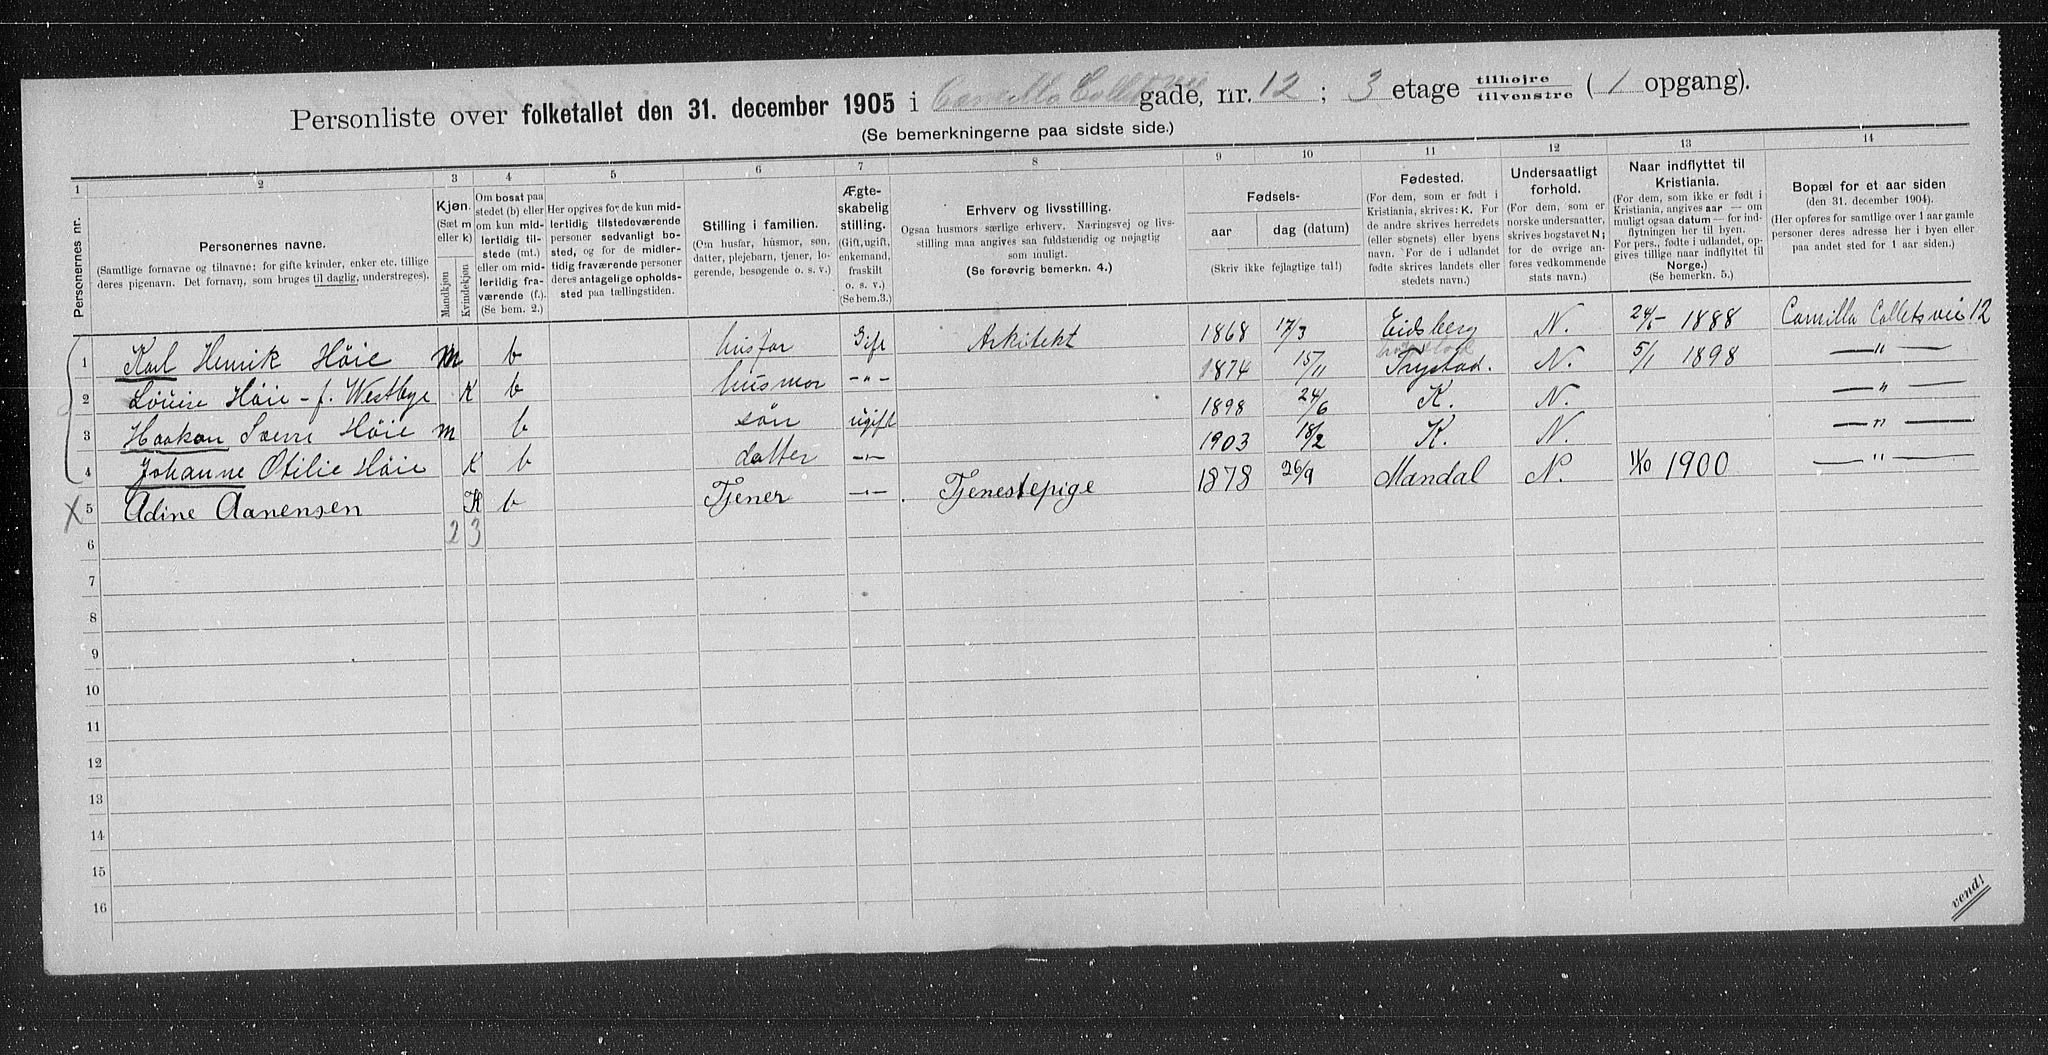 Personliste over folketallet den 31. december 1905 i Camilla Colletsvei gade, nr. 12 ; 3 etage tilhøjre tilvenstre ( 1 opgang).
(Se bemerkningerne paa sidste side.)
1 2 3 4 5 6 7 8 9 10 11 12 13 14
Personernes nr.
Personernes navne.
(Samtlige fornavne og tilnavne; for gifte kvinder, enker etc. tillige
deres pigenavn. Det fornavn, som bruges til daglig, understreges).
Kjøn.
(Sæt m
eller k)
Mandkjøn
Kvindekjøn
Om bosat paa
stedet (b) eller
om kun mid-
lertidig til-
stede (mt.)
eller om mid-
lertidig fra-
værende (f.).
(Se bem. 2.)
Her opgives for de kun mid-
lertidig tilstedeværende
personer sedvanligt bo-
sted, og for de midler-
tidig fraværende personer
deres antagelige opholds-
sted paa tællingstiden.
Stilling i familien.
(Om husfar, husmor, søn,
datter, plejebarn, tjener, lo-
gerende, besøgende o. s. v.)
Ægte-
skabelig
stilling.
(Gift, ugift,
enkemand,
fraskilt
o. s. v.)
(Se bem. 3.)
Erhverv og livsstilling.
Ogsaa husmors særlige erhverv. Næringsvej og livs-
stilling maa angives saa fuldstændig og nøjagtig
som muligt.
(Se forøvrig bemerkn. 4.)
Fødsels-
aar dag (datum)
(Skriv ikke fejlagtige tal!)
Fødested.
(For dem, som er født i
Kristiania, skrives: K. For
de andre skrives herredets
(eller sognets) eller byens
navn. For de i udlandet
fødte skrives landets eller
stedets navn.)
Undersaatligt
forhold.
(For dem, som er
norske undersaatter,
skrives bogstavet N;
for de øvrige an-
føres vedkommende
stats navn.)
Naar indflyttet til
Kristiania.
(For dem, som ikke er født i
Kristiania, angives aar — om
muligt ogsaa datum — for ind-
flytningen her til byen.
For pers., fødte i udlandet, op-
gives tillige naar indflyttet til
Norge.)
(Se bemerkn. 5.)
Bopæl for et aar siden
(den 31. december 1904).
(Her opføres for samtlige over 1 aar gamle
personer deres adresse her i byen eller
paa andet sted for 1 aar siden.)
1 Karl Henrik Höie m b husfar Gift Arkitekt 1868 17/3 Eidsberg N. 1888 Camilla Colletsvei 12
2 Louise Höie - f. Westbye K b husmor -"- 1874 15/11 Trystad. N. 5/1 1898 — " —
3 Haakon Höie m b søn ugift 1898 24/6 K. N. — " —
4 Johanne Otilie Höie K b datter -"- 1903 18/2 K. N. — " —
X 5 Adine Aanensen K b Tjener -"- Tjenestepige 1878 26/9 Mandal N. 11/10 1900 — " —
6 2 3
7
8
9
10
11
12
13
14
15
16
vend!